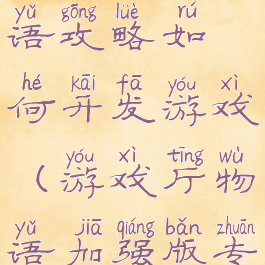 yǔ gōng lüè rú
语攻略如
hé kāi fā yóu xì
何开发游戏
yóu xì tīng wù
（游戏厅物
yǔ jiā qiáng bǎn zhuān
语加强版专